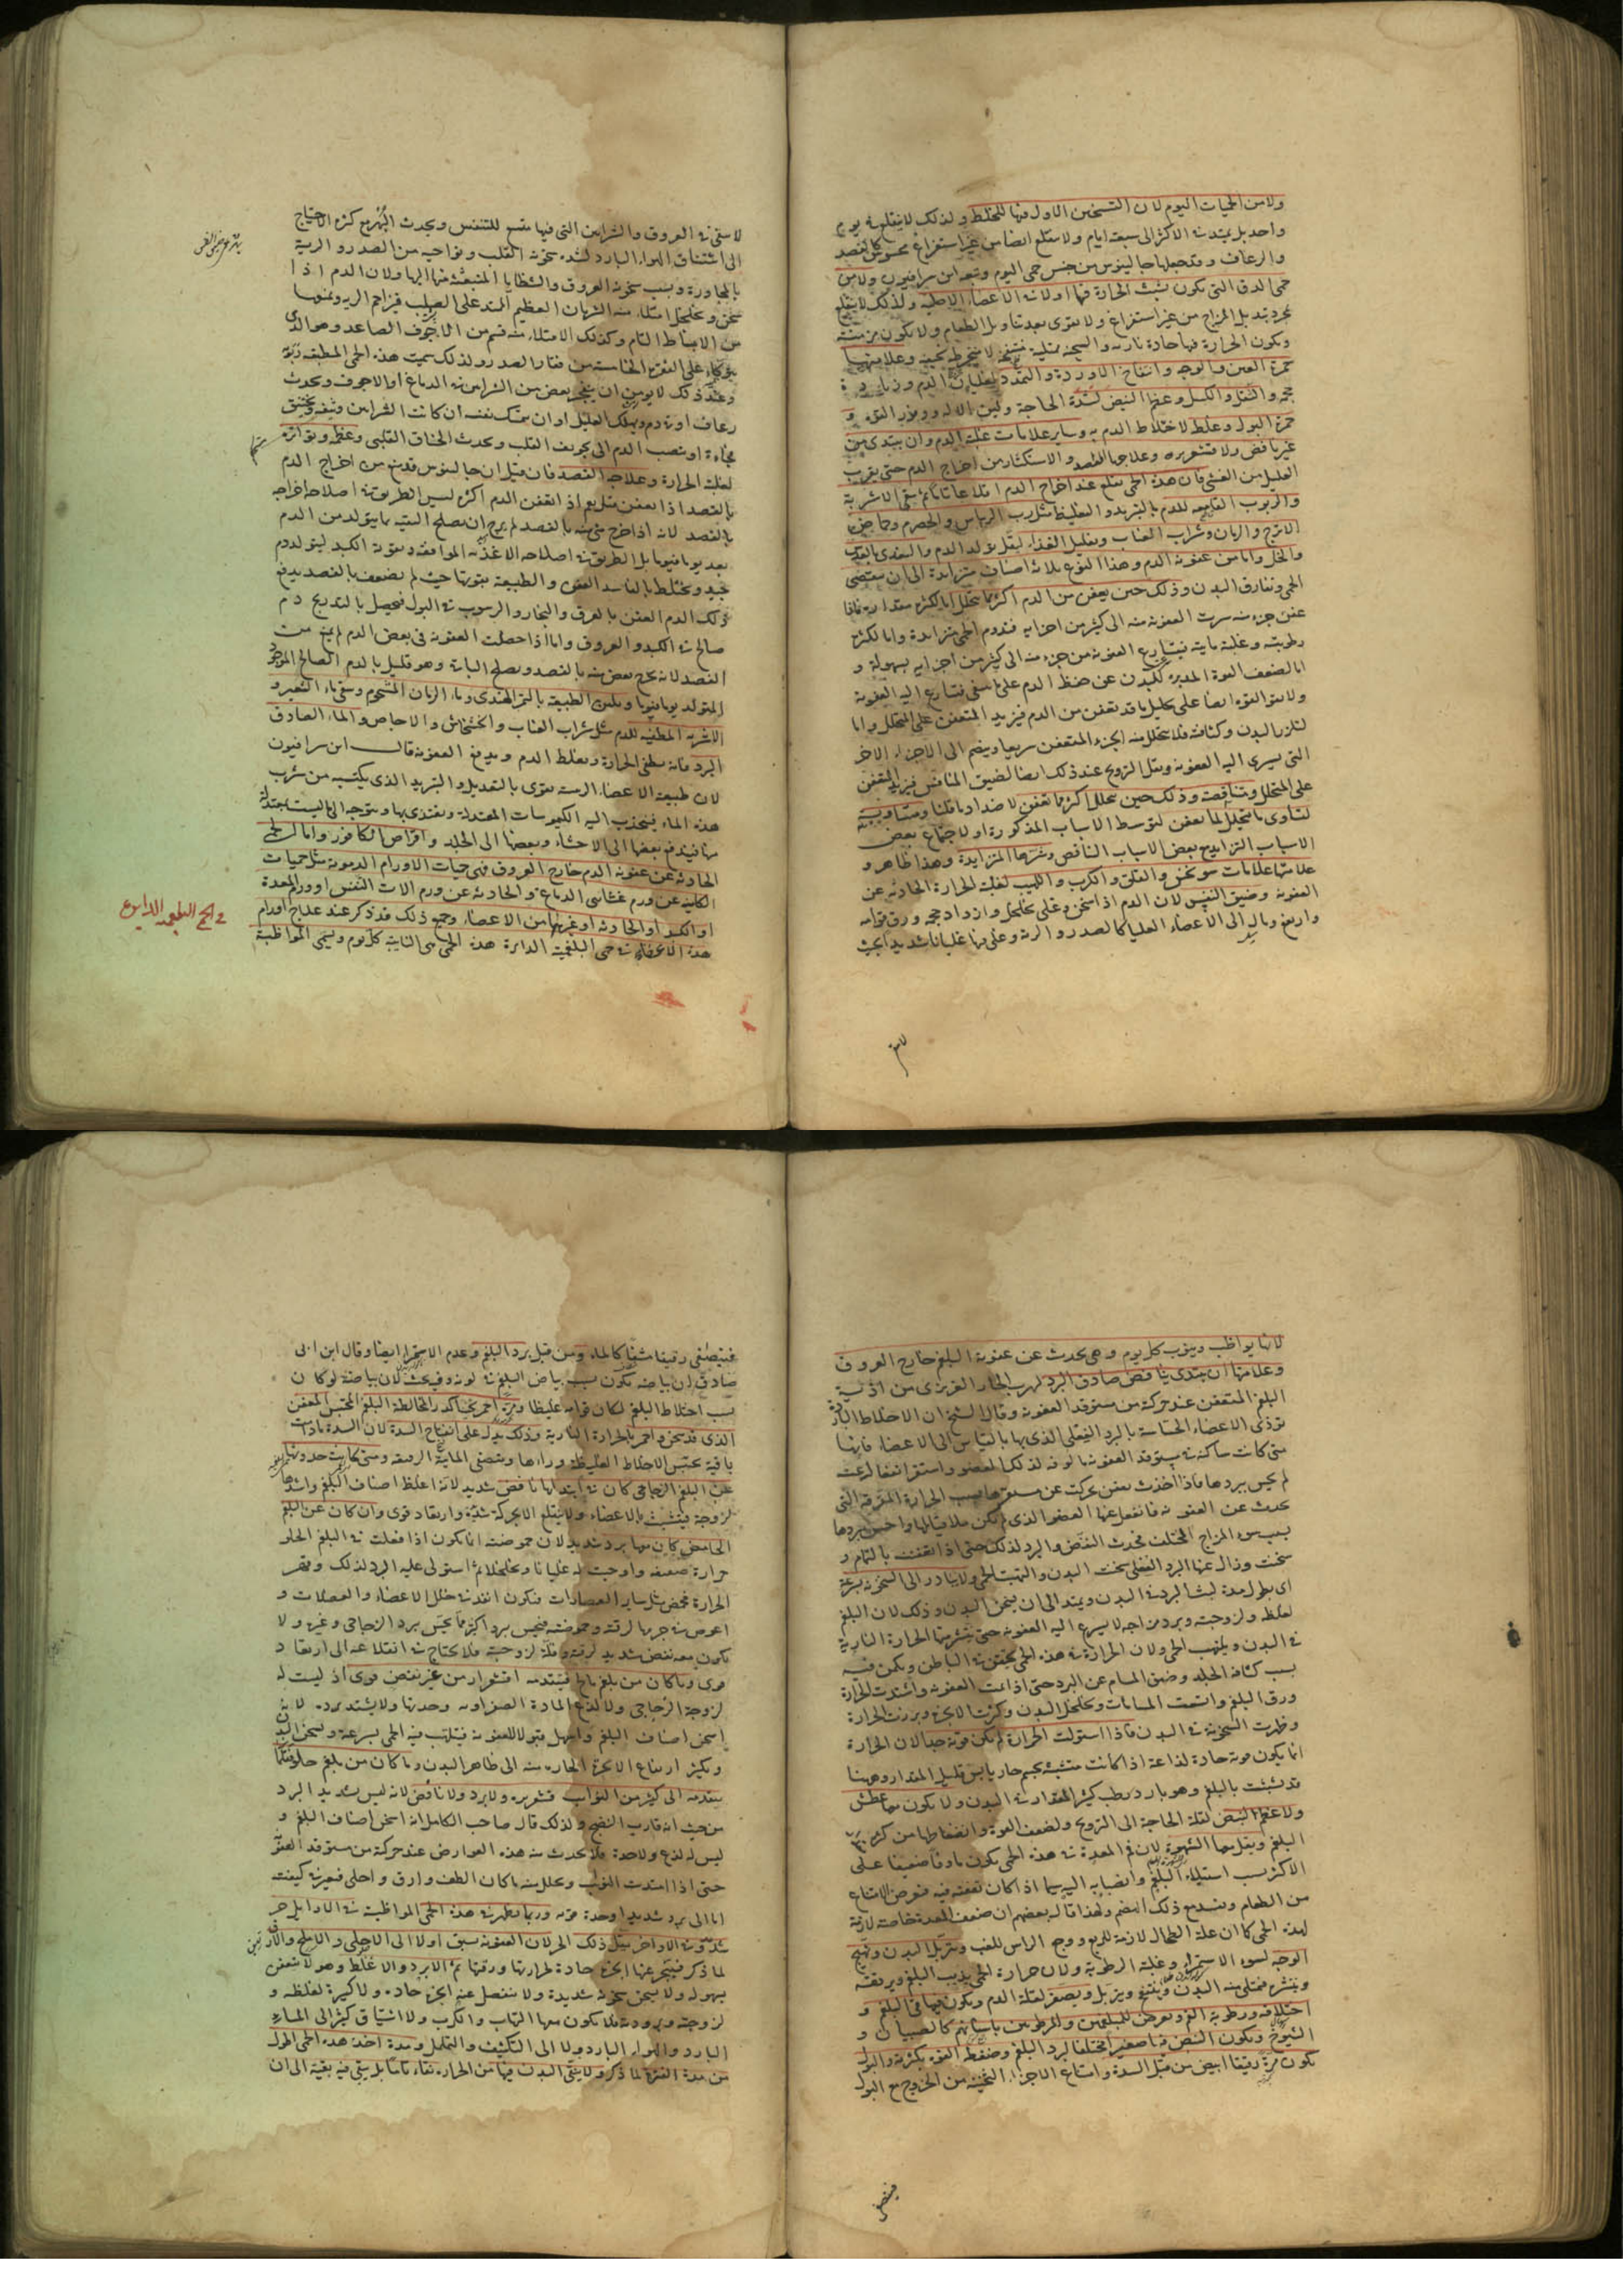 ولا من الحميات اليوم لان التسخين الاول فيها للخلط ولذلك لا ينقلع في يوم
واحد بل يمتد في الاكثر الى سبعة ايام ولا تقلع ايضا من غير استفراغ محسوس كالفصد
والرعاف وقد جعلها جالينوس من جنس حمى اليوم وتبعه ابن سرافيون ولا من
حمى الدق التى يكون تشبث الحرارة فيها اولا في الاعضاء الاصلية ولذلك لا ينقلع
بمجرد تبديل المزاج من غير استفراغ ولا تقوى بعد تناول الطعام ولا يكون مزمنة
ويكون الحرارة فيها حادة نارية والسحنة ممتلية منتفخة لا منخرطة نحيفة وعلامتها
حمرة العين والوجه وانتفاخ الاوردة والتمدد لغليان الدم وزيادة
حجمه والثقل والكسل وعظم النبض لشدة الحاجة ولين الالة ووفور القوة و
حمرة البول وغلظه لاختلاط الدم به وساير علامات غلبة الدم وان يبتدى من
غير نافض ولا قشعريرة وعلاجها الفصد والاستكثار من اخراج الدم حتى يقرب
العليل من الغشى فان هذه الحمى تقلع عند اخراج الدم اقلاعا تاما ثم سقى الاشربة
والربوب القامعة للدم بالتبريد والتغليظ مثل رب الريباس والحصرم وحماض
الاترج والرمان وشراب العناب وتقليل الغذاء ليقل تولد الدم والتغذى بالعدس
والخل واما من عفونة الدم وهذا النوع ثلاثة اصناف متزايدة الى ان تنقضى
الحمى وتفارق البدن وذلك حين يعفن من الدم اكثر مما يتحلل اما لكثرة مقداره فاذا
عفن جزء منه سرت العفونة منه الى كثير من اجزايه فتدوم الحمى متزايدة واما لكثرة
رطوبته وغلبة مايته فيتسارع العفونة من جزء منه الى كثير من اجزايه بسهولة و
اما لضعف القوة المدبرة للبدن عن حفظ الدم على ما ينبغى فتسارع اليه العفونة
ولا تقوى القوة ايضا على تحليل ما قد تعفن من الدم فيزيد المتعفن على المتحلل واما
لتلزز البدن وكثافته فلا يتحلل منه الجزء المتعفن سريعا وينضم الى الاجزاء الاخر
التى يسرى اليه العفونة ويقل الترويح عند ذلك ايضا لضيق المنافس فيزيد المتعفن
على المتحلل ومتناقصة وذلك حين يتحلل اكثر مما تعفن لاضداد ما قلنا ومتساوية
لتساوى ما يتحلل لما يعفن لتوسط الاسباب المذكورة او لاجتماع بعض
الاسباب التزايد مع بعض الاسباب التناقص وشرها المتزايدة وهذا ظاهر و
علامتها علامات سونوخس والقلق والكرب واللهيب لغلبة الحرارة الحادثة عن
العفونة وضيق النفس لان الدم اذا سخن وغلى تخلخل وازداد حجمه ورق قوامه
وارتفع ومال الى الاعضاء العليا كالصدر والرية وغلى فيها غليانا شديدا بحيث
لا يبقى
لا يبقى في العروق والشرايين التى فيها متسع للتنفس ويحدث البُهر مع كثرة الاحتياج
الى استنشاق الهواء البارد لشدة سخونة القلب ونواحيه من الصدر والرية
بالمجاورة وبسبب سخونة العروق والشظايا المنبثة منها اليها ولان الدم اذا
سخن وتخلخل امتلاء منه الشريان العظيم الممتد على الصلب فيزاحم الرية ويمنعها
من الانبساط التام وكذلك الامتلاء منه قسم من الاجوف الصاعد وهو الذى
يتوكاء على الفقرة الخامسة من فقار الصدر ولذلك سميت هذه الحمى المطبقة
وعند ذلك لا يومن ان ينفجر بعض من الشرايين في الدماغ او الاجوف ويحدث
رعاف او نفث دم ويهلك العليل او ان يمسك نفسه ان كانت الشرايين وثيقة ويختنق
فجأة او ينصب الدم الى تجويف القلب ويحدث الخناق القلبى وعظمه وتواتره
لغلبة الحرارة وعلاجه الفصد فان قيل ان جالينوس قد منع من اخراج الدم
بالفصد اذا تعفن مثل يوم اذ تعفن الدم اكثره ليس الطريق في اصلاحه اخراجه
بالفصد لانه اذا خرج شى منه بالفصد لم يرج ان يصلح البقية بما يتولد من الدم
بعد يوما فيوما بل الطريق في اصلاحه الاغذية الموافقة وتقوية الكبد ليتولد دم
جيد ويختلط بالفاسد العفن والطبيعة بقوتها حيث لم تضعف بالفصد يدفع
ذلك الدم العفن بالعرق والبخار والرسوب في البول فيحصل بالتدريج دم
صالح في الكبد والعروق واما اذا حصلت العفونة في بعض الدم لم يمنع من
الفصد لانه يخرج بعض منه بالفصد ويصلح الباقى وهو قليل بالدم الصالح الموجود
المتولد يوما فيوما وتليين الطبيعة بالتمر الهندى وماء الرمان المشحوم وسقى ماء الشعير و
الاشربة المطفية للدم مثل شراب العناب والخشخاش والاجاص والماء الصادق
البرد فانه يطفى الحرارة ويغلظ الدم ويدفع العفونة قال ابن سرافيون
لان طبيعة الاعضاء الرئيسة تقوى بالتعديل والتبريد الذى يكتسبه من شرب
هذه الماء فينجذب اليه الكيموسات المعتدلة ويغتذى بها ويتوجه الى ما ليست بمعتدلة
منها فيندفع بعضها الى الاحشاء وبعضها الى الجلد واقراص الكافور واما الحمى
الحادثة عن عفونة الدم خارج العروق فهى حميات الاورام الدموية مثل حميات
الكاينة عن ورم غشائى الدماغ والحادثة عن ورم الات النفس او ورم المعدة
او الكبد او الحادثة او غيرها من الاعضاء وجميع ذلك قد ذكر عند علاج اورام
هذه الاعضاء في حمى البلغمية الدايرة هذه الحمى هى النايبة كل يوم وتسمى المواظبة
في الحمى البلغمية الدايرة
لانها يواظب وينوب كل يوم وهى يحدث عن عفونة البلغم خارج العروق
وعلامتها ان يبتدى بنافض صادق البرد لهرب الحار الغريزى من اذية
البلغم المتعفن عند حركته من مستوقد العفونة وقال الشيخ ان الاخلاط الباردة
توذى الاعضاء الحساسة بالبرد الفعلى الذى بها بالقياس الى الاعضاء فانها
متى كانت ساكنة في مستوقد العفونة مالوفة لذلك العضو واستقر انفعالها عنه
لم يحس ببردها فاذا اخذت تعفن تحركت عن مستقرها بسبب الحرارة المفرقة التى
يحدث عن العفونة فانفعل عنها العضو الذى لم يكن ملاقيا لها واحس ببردها
بسبب سوء المزاج المختلف فيحدث النفض والبرد لذلك حتى اذا تعفنت بالتمام و
سخنت وزال عنها البرد الفعلى سخنت البدن والتهبت الحمى ولا يبادر الى السخونة بسرعة
اى يطول مدة لبث البرد في البدن ويمتد الى ان يسخن البدن وذلك لان البلغم
لغلظه ولزوجته وبرد مزاجه لا يسرع اليه العفونة حتى تنتشر منها الحرارة النارية
في البدن ويلتهب الحمى ولان الحرارة في هذه الحمى يحتقن في الباطن ويكمن فيه
بسبب كثافة الجلد وضيق المسام عن البرد حتى اذا تمت العفونة واشتدت الحرارة
ورق البلغم واتسعت المسامات وتخلخل البدن وكثرت الابخرة وبرزت الحرارة
وظهرت السخونة في البدن فاذا استولت الحرارة لم يكن قوية جدا لان الحرارة
انما يكون قوية حادة لذاعة اذا كانت متشبثة بجسم حار يابس قليل المقدار وههنا
قد تشبثت بالبلغم وهو بارد رطب كثير المقدار في البدن ولا يكون معها عطش
ولا عظم النبض لقلة الحاجة الى الترويح ولضعف القوة وانضغاطها من كثرة
البلغم ويقل معها الشهوة لان فم المعدة في هذه الحمى يكون ماوفا ضعيفا على
الاكثر بسبب استيلاء البلغم وانصبابه اليه سيما اذا كان تعفنه فيه فيعرض الامتناع
من الطعام ويفسد مع ذلك الهضم ولهذا قال بعضهم ان ضعف المعدة خاصته لازمة
لهذه الحمى كما ان علة الطحال لازمة للربع ووجع الراس للغب ويتربل البدن ويتهيج
الوجه لسوء الاستمراء وغلبة الرطوبة ولان حرارة الحمى يذيب البلغم ويرققه
وينشره فيمتلى منه البدن وينتفخ ويتربل ويصفر لقلة الدم ويكون فيها قى البلغم و
اختلافه ورطوبة الفم ويعرض للمبلغمين والمرطوبين باسنانهم كالصبيان و
الشيوخ ويكون النبض فيها صغيرا مختلفا لبرد البلغم وضغطه القوة بكثرته والبول
يكون مرة رقيقا ابيض من قبل السدة وامتناع الاجزاء الثخينة من الخروج مع البول
فيتصفى
فيتصفى رقيقا مشفا كالماء ومن قبل برد البلغم وعدم الاستمراء ايضا وقال ابن ابى
صادق ان بياضه يكون بسبب بياض البلغم في لونه وفيه بحث لان بياضه لو كان
بسبب اختلاط البلغم لكان قوامه غليظا ومرة احمر ثخينا كدرا لمخالطة البلغم المحتبس المتعفن
الذى قد سخن واحمر بالحرارة النارية وذلك يدل على انفتاح السدة لان السدة مادامت
باقية يحتبس الاخلاط الغليظة وراءها ويتصفى المائية الرقيقة ومتى كانت حدوثها
عن البلغم الزجاجى كان في ابتدائها نافض شديد لانه اغلظ اصناف البلغم واشدها
لزوجة فيتشبث بالاعضاء ولا ينقلع الا بحركة شديدة وارتعاد قوى وان كان عن البلغم
الحامض كان معها برد شديد لان حموضته انما يكون اذا فعلت في البلغم الحلو
حرارة ضعيفة واوجبت له غليانا وتخلخلا ثم استولى عليه البرد لذلك وقهر
الحرارة فحمض مثل ساير العصارات فيكون انفذ في خلل الاعضاء والعضلات و
اغوص في جرمها لرقته وحموضته فيحس ببرد اكثر مما يحس ببرد الزجاجى وغيره ولا
يكون معه نفض شديد لرقته وقلة لزوجته فلا يحتاج في انقلاعه الى ارتعاد
قوى وما كان من بلغم مالح فيتقدمه اقشعرار من غير نفض قوى اذ ليست له
لزوجة الزجاجى ولا لذع المادة الصفراوية وحدتها ولا يشتد برده لانه
اسخن اصناف البلغم واسهل قبولا للعفونة فيلتهب فيه الحمى بسرعة ويسخن البدن
ويكثر ارتفاع الابخرة الحارة منه الى ظاهر البدن وما كان من بلغم حلو فقلما
يتقدمه الى كثير من النوايب قشعريرة ولا برد ولا نافض لانه ليس شديد البرد
من حيث انه قارب النضج ولذلك قال صاحب الكامل انه اسخن اصناف البلغم و
ليس له لذع ولا حدة فلا يحدث منه هذه العوارض عند حركته من مستوقد العفونة
حتى اذا امتدت النوايب وتحلل منه ما كان الطف وارق واحلى فتغيرت كيفيته
اما الى برد شديد او حدة قوية وربما يظهر في هذه الحمى المواظبة في الاوايل حر
شديد وفى الاواخر يقل ذلك الحر لان العفونة يسبق اولا الى الاحلى والاملح والارق
لما ذكر فيتبخر عنها ابخرة حادة لحرارتها ورقتها ثم الابرد والاغلظ وهو لا يتعفن
بسهولة ولا يسخن سخونة شديدة ولا ينفصل عنه ابخرة حادة ولا كثيرة لغلظه و
لزوجته وبرودته فلا يكون معها التهاب والكرب ولا اشتياق كثير الى الماء
البارد والهواء البارد ولا الى التكشف والتململ ومدة اخذ هذه الحمى اطول
من مدة الفترة لما ذكر ولا ينقى البدن فيها من الحرارة نقاء تاما بل يبقى فيه بقية الى ان